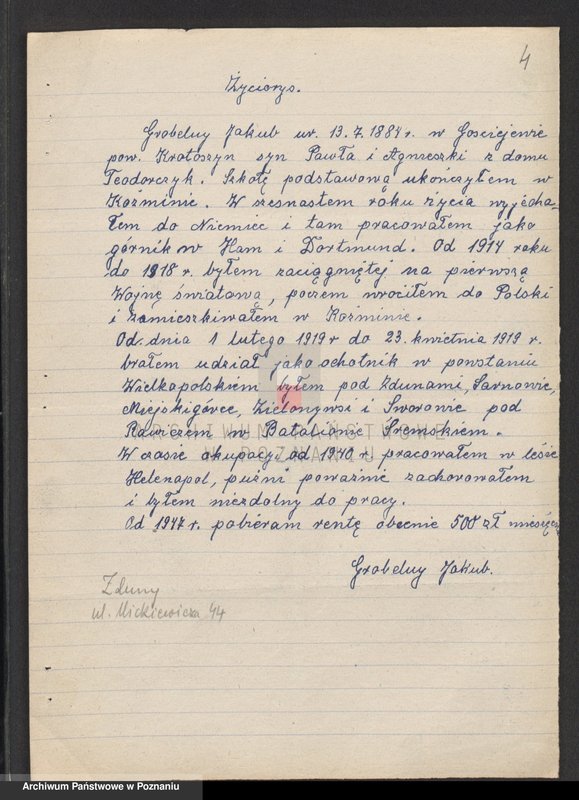 4
Życiorys.
Grobelny Jakub ur. 13.7.1884 r. w Gosciejewie
pow. Krotoszyn syn Pawła i Agnieszki z domu
Teodorczyk. Szkołę podstawową ukończyłem w
Koźminie. W szesnastem roku życia wyjecha-
łem do Niemiec i tam pracowałem jako
górnik w Ham i Dortmund. Od 1914 roku
do 1918 r. byłem zaciągnięty na pierwszą
Wojnę światową, poczem wrociłem do Polski
i zamieszkiwałem w Kozminie.
Od. dnia 1 lutego 1919 r do 23. kwietnia 1919 r.
brałem udział jako ochotnik w powstaniu
Wielkopolskiem byłem pod Zdunami, Sarnowie,
Miejskigórce, Zielonejwsi i Sworowie pod
Rawiczem w Batalionie Śremskiem.
W czasie okupacji od 1940 r. pracowałem w lesie
Helenapol, puźni poważnie zachorowałem
i byłem niezdolny do pracy.
Od 1947 r. pobieram rentę obecnie 500 zł miesięcz
Grobelny Jakub.
Zduny
ul. Mickiewicza 44
ARCHIWUM PAŃSTWOWE
W POZNANIU
Archiwum Państwowe w Poznaniu